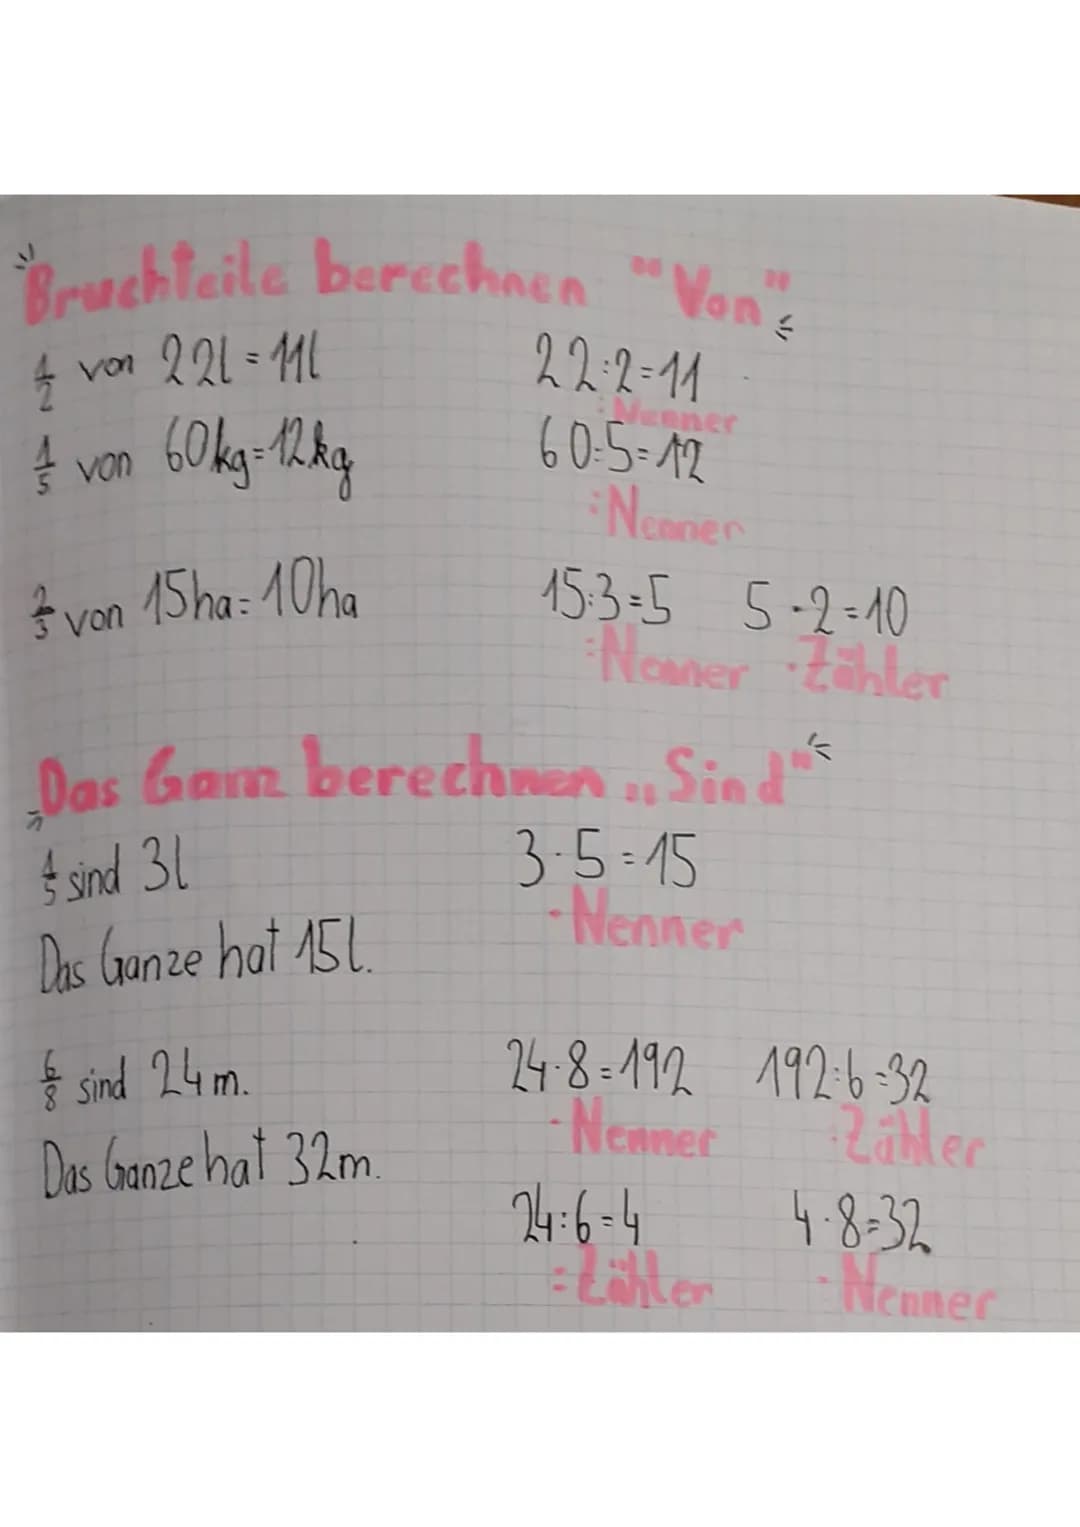 Bruchteile berechnen "Von"
1/2 von 22l = 11l 22:2=11
:Nenner
1/5 von 60kg=12kg 60:5=12
:Nenner
2/3 von 15ha=10ha 15:3=5 5·2=10
:Nenner ·Zähler
Das Ganz berechnen „Sind"
1/5 sind 3l 3·5=15
·Nenner
Das Ganze hat 15l.
6/8 sind 24m. 24·8=192 192:6=32
·Nenner :Zähler
Das Ganze hat 32m.
24:6=4 4·8=32
:Zähler ·Nenner